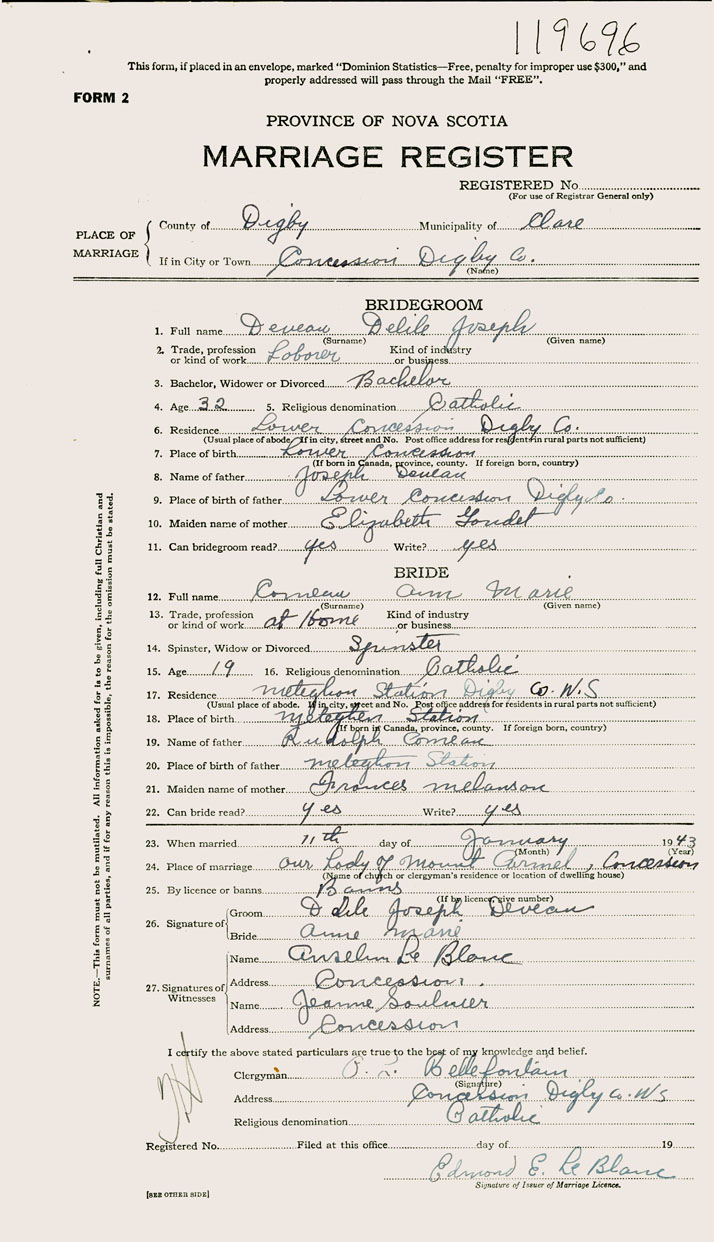 119696
This form, if placed in an envelope, marked "Dominion Statistics—Free, penalty for improper use $300," and
properly addressed will pass through the Mail "FREE".
FORM 2
PROVINCE OF NOVA SCOTIA
MARRIAGE REGISTER
REGISTERED No.
(For use of Registrar General only)
PLACE OF MARRIAGE
County of Digby Municipality of Clare
If in City or Town Concession Digby Co.
(Name)
BRIDEGROOM
1. Full name Deveau Delile Joseph
(Surname) (Given name)
2. Trade, profession or kind of work Laborer Kind of industry or business
3. Bachelor, Widower or Divorced Bachelor
4. Age 32 5. Religious denomination Catholic
6. Residence Lower Concession Digby Co.
(Usual place of abode. If in city, street and No. Post office address for residents in rural parts not sufficient)
7. Place of birth Lower Concession
(If born in Canada, province, county. If foreign born, country)
8. Name of father Joseph Deveau
9. Place of birth of father Lower Concession Digby Co.
10. Maiden name of mother Elizabeth Goudet
11. Can bridegroom read? yes Write? yes
BRIDE
12. Full name Comeau Ann Marie
(Surname) (Given name)
13. Trade, profession or kind of work at Home Kind of industry or business
14. Spinster, Widow or Divorced Spinster
15. Age 19 16. Religious denomination Catholic
17. Residence Meteghan Station Digby Co. N.S
(Usual place of abode. If in city, street and No. Post office address for residents in rural parts not sufficient)
18. Place of birth Meteghan Station
(If born in Canada, province, county. If foreign born, country)
19. Name of father Rudolph Comeau
20. Place of birth of father Meteghan Station
21. Maiden name of mother Frances Melanson
22. Can bride read? yes Write? yes
23. When married 11th day of January 1943
(Month) (Year)
24. Place of marriage Our Lady of Mount Carmel, Concession
(Name of church or clergyman's residence or location of dwelling house)
25. By licence or banns Banns
(If by licence, give number)
26. Signature of
Groom Delile Joseph Deveau
Bride Anne Marie
27. Signatures of Witnesses
Name Anselm Le Blanc
Address Concession.
Name Jeanne Saulnier
Address Concession
I certify the above stated particulars are true to the best of my knowledge and belief.
Clergyman Bellefontain
(Signature)
Address Concession Digby Co. N.S
Religious denomination Catholic
Registered No. Filed at this office day of 19
Edmond E. Le Blanc
Signature of Issuer of Marriage Licence.
[SEE OTHER SIDE]
NOTE.—This form must not be mutilated. All information asked for is to be given, including full Christian and
surnames of all parties, and if for any reason this is impossible, the reason for the omission must be stated.